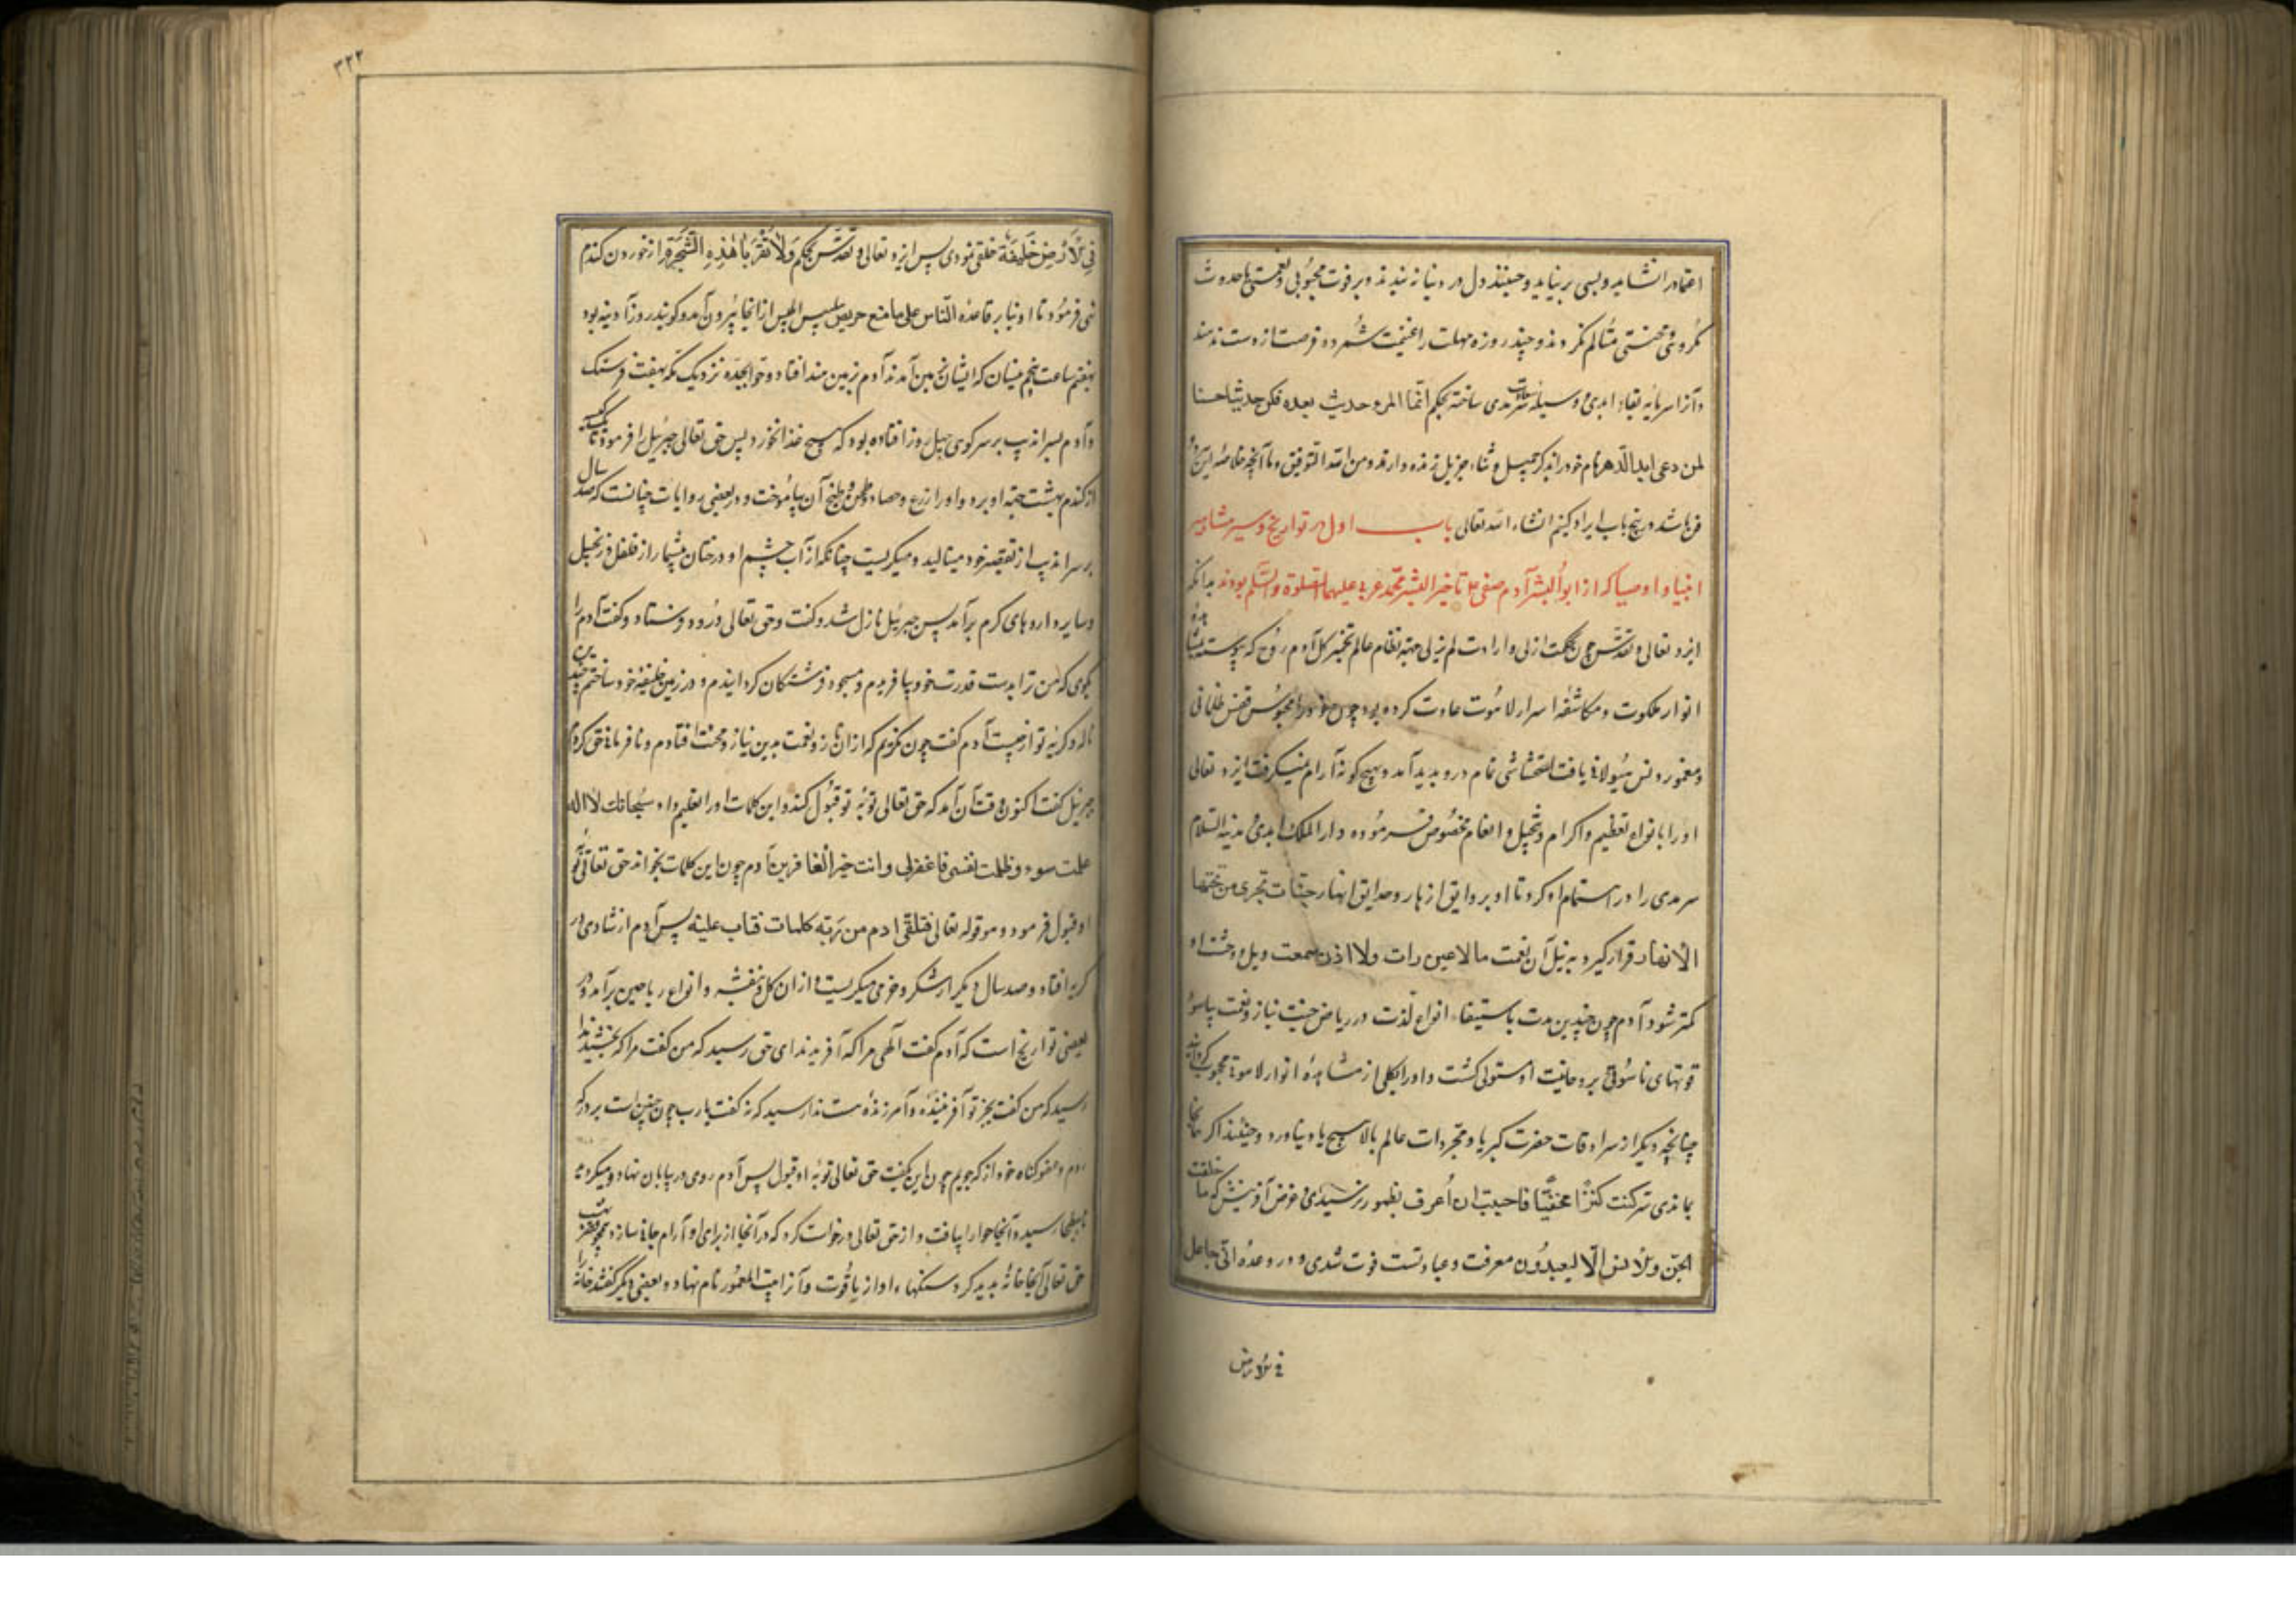 اعتماد را نشاید و بسی بر نیاید و حینئذ دل در دنیا نبندند و بر فوت محبوبی و نعمتی یا حدوث
مکروهی و محنتی متألم نکردند و چند روزه مهلت را غنیمت شمرده فرصت از دست ندهند
و آنرا سرمایه بقاء ابدی و وسیله سرمدی ساخته بحکم انما المرء حدیث بعده فکن حدیثا حسنا
لمن وعی ابد الدهر نام خود را بذکر جمیل و ثناء جزیل زنده دارند و من الله التوفیق و ما آنچه خلاصه این
فن باشد در پنج باب ایراد کنیم انشاء الله تعالی باب اول در تواریخ و سیر مشاهیر
انبیا و اوصیا که از ابوالبشر آدم صفی تا خیر البشر محمد عربی علیهما الصلوة والسلم بودند بدانکه
ایزد تعالی و تقدس چون بحکمت ازلی و ارادت لم یزلی جهة نظام عالم تخمیر کل آدم روح که پیوسته
انوار ملکوت و مکاشفه اسرار لاهوت عادت کرده بود چون خود را محبوس قفس ظلمانی
و مغمور و نس هیولانی یافت استیحاشی تمام درو بدید آمد و بهیچ گونه آرام نمیکرفت ایزد تعالی
او را بانواع تعظیم و اکرام و تبجیل و انعام مخصوص فرموده دار الملک ابدی مدینة السلام
سرمدی را در استمام او کرد تا او بر وایق ازهار و حدایق انهار جنات تجری من تحتها
الانهار قرار کیرد و به نیل آن نعمت ما لا عین رات ولا اذن سمعت ویل وحشت او
کمتر شود آدم چون چندین مدت باستیفاء انواع لذت در ریاض جنت نیاز و نعمت بیاسود
قوتهای ناسوتی بر روحانیت او مستولی کشت و او را بکلی از مشاهدهٔ انوار لاهوتی محجوب کردانید
چنانچه دیکر از سرادقات حضرت کبریا و مجردات عالم بالا هیچ یاد نیاورد و حینئذ اکر همانجا
بماندی سر کنت کنزا مخفیا فاحببت ان أعرف بظهور نرسیدی و غرض آفرینش که ما خلقت
الجن والانس الا لیعبدون معرفت و عبادتست فوت شدی و در وعده انی جاعل
فی الارض
٣٢٢
فی الارض خلیفة خلقی نمودی پس ایزد تعالی و تقدس بحکم ولا تقربا هذه الشجرة او را از خوردن کندم
نهی فرمود تا او بنا بر قاعده الناس علی ما منع حریص بتلبیس ابلیس از آنجا بیرون آمد و کویند روز آدینه بود
هفتم ساعت پنجم نیسان که ایشان بزمین آمدند آدم بزمین هند افتاد و حوا بجده نزدیک مکه بهفت فرسنک
و آدم بسراندیب بر سر کوهی چهل روز افتاده بود که هیچ غذا نخورد پس حق تعالی جبرئیل را فرمود تا
از کندم بهشت جهة او برد و او را زرع و حصاد و طحن و طبخ آن بیاموخت و در بعضی روایات چنانست که صد سال
بر سراندیب از تقصیر خود مینالید و میکریست چنانکه از آب چشم او درختان بیشمار از فلفل و زنجبیل
و سایر داروهای کرم برآمد پس جبرئیل نازل شد و کفت حق تعالی درود فرستاد و کفت آدم را
بکوی که من ترا بدست قدرت خود بیافریدم و مسجود فرشتکان کردانیدم و در زمین خلیفهٔ خود ساختم چندین
ناله و کریه تو از چیست آدم کفت چون نکریم که از آن ناز و نعمت بدین نیاز و محنت افتادم و نافرمانی حق کردم
جبرئیل کفت اکنون وقت آن آمد که حق تعالی توبهٔ تو قبول کند و این کلمات او را تعلیم داد سبحانک لا اله
عملت سوء و ظلمت نفسی فاغفرلی وانت خیر الغافرین آدم چون این کلمات بخواند حق تعالی توبهٔ
او قبول فرمود و هو قوله تعالی فتلقی ادم من ربه کلمات فتاب علیه پس آدم از شادی در
کریه افتاد و صد سال دیکر از شکر و خرمی میکریست و ازان کل و بنفشه و انواع ریاحین برآمد و در
بعضی تواریخ است که آدم کفت الهی مرا که آفرید ندای حق رسید که من کفت مرا که بخشد ندا
رسید که من کفت بجز تو آفریننده و آمرزنده هست ندا رسید که نه کفت یارب چون چنین است بر در که
روم و عفو کناه خود از که جویم چون این بکفت حق تعالی توبهٔ او قبول پس آدم روی در بیابان نهاد و میکردید تا
ببطحا رسید و آنجا حوا را بیافت و از حق تعالی درخواست کرد که در آنجا از برای او آرام جائی سازد
حق تعالی آنجا خانهٔ بدید کرد سنکهاء او از یاقوت و آنرا بیت المعمور نام نهاد و بعضی دیکر کفته اند خانه را